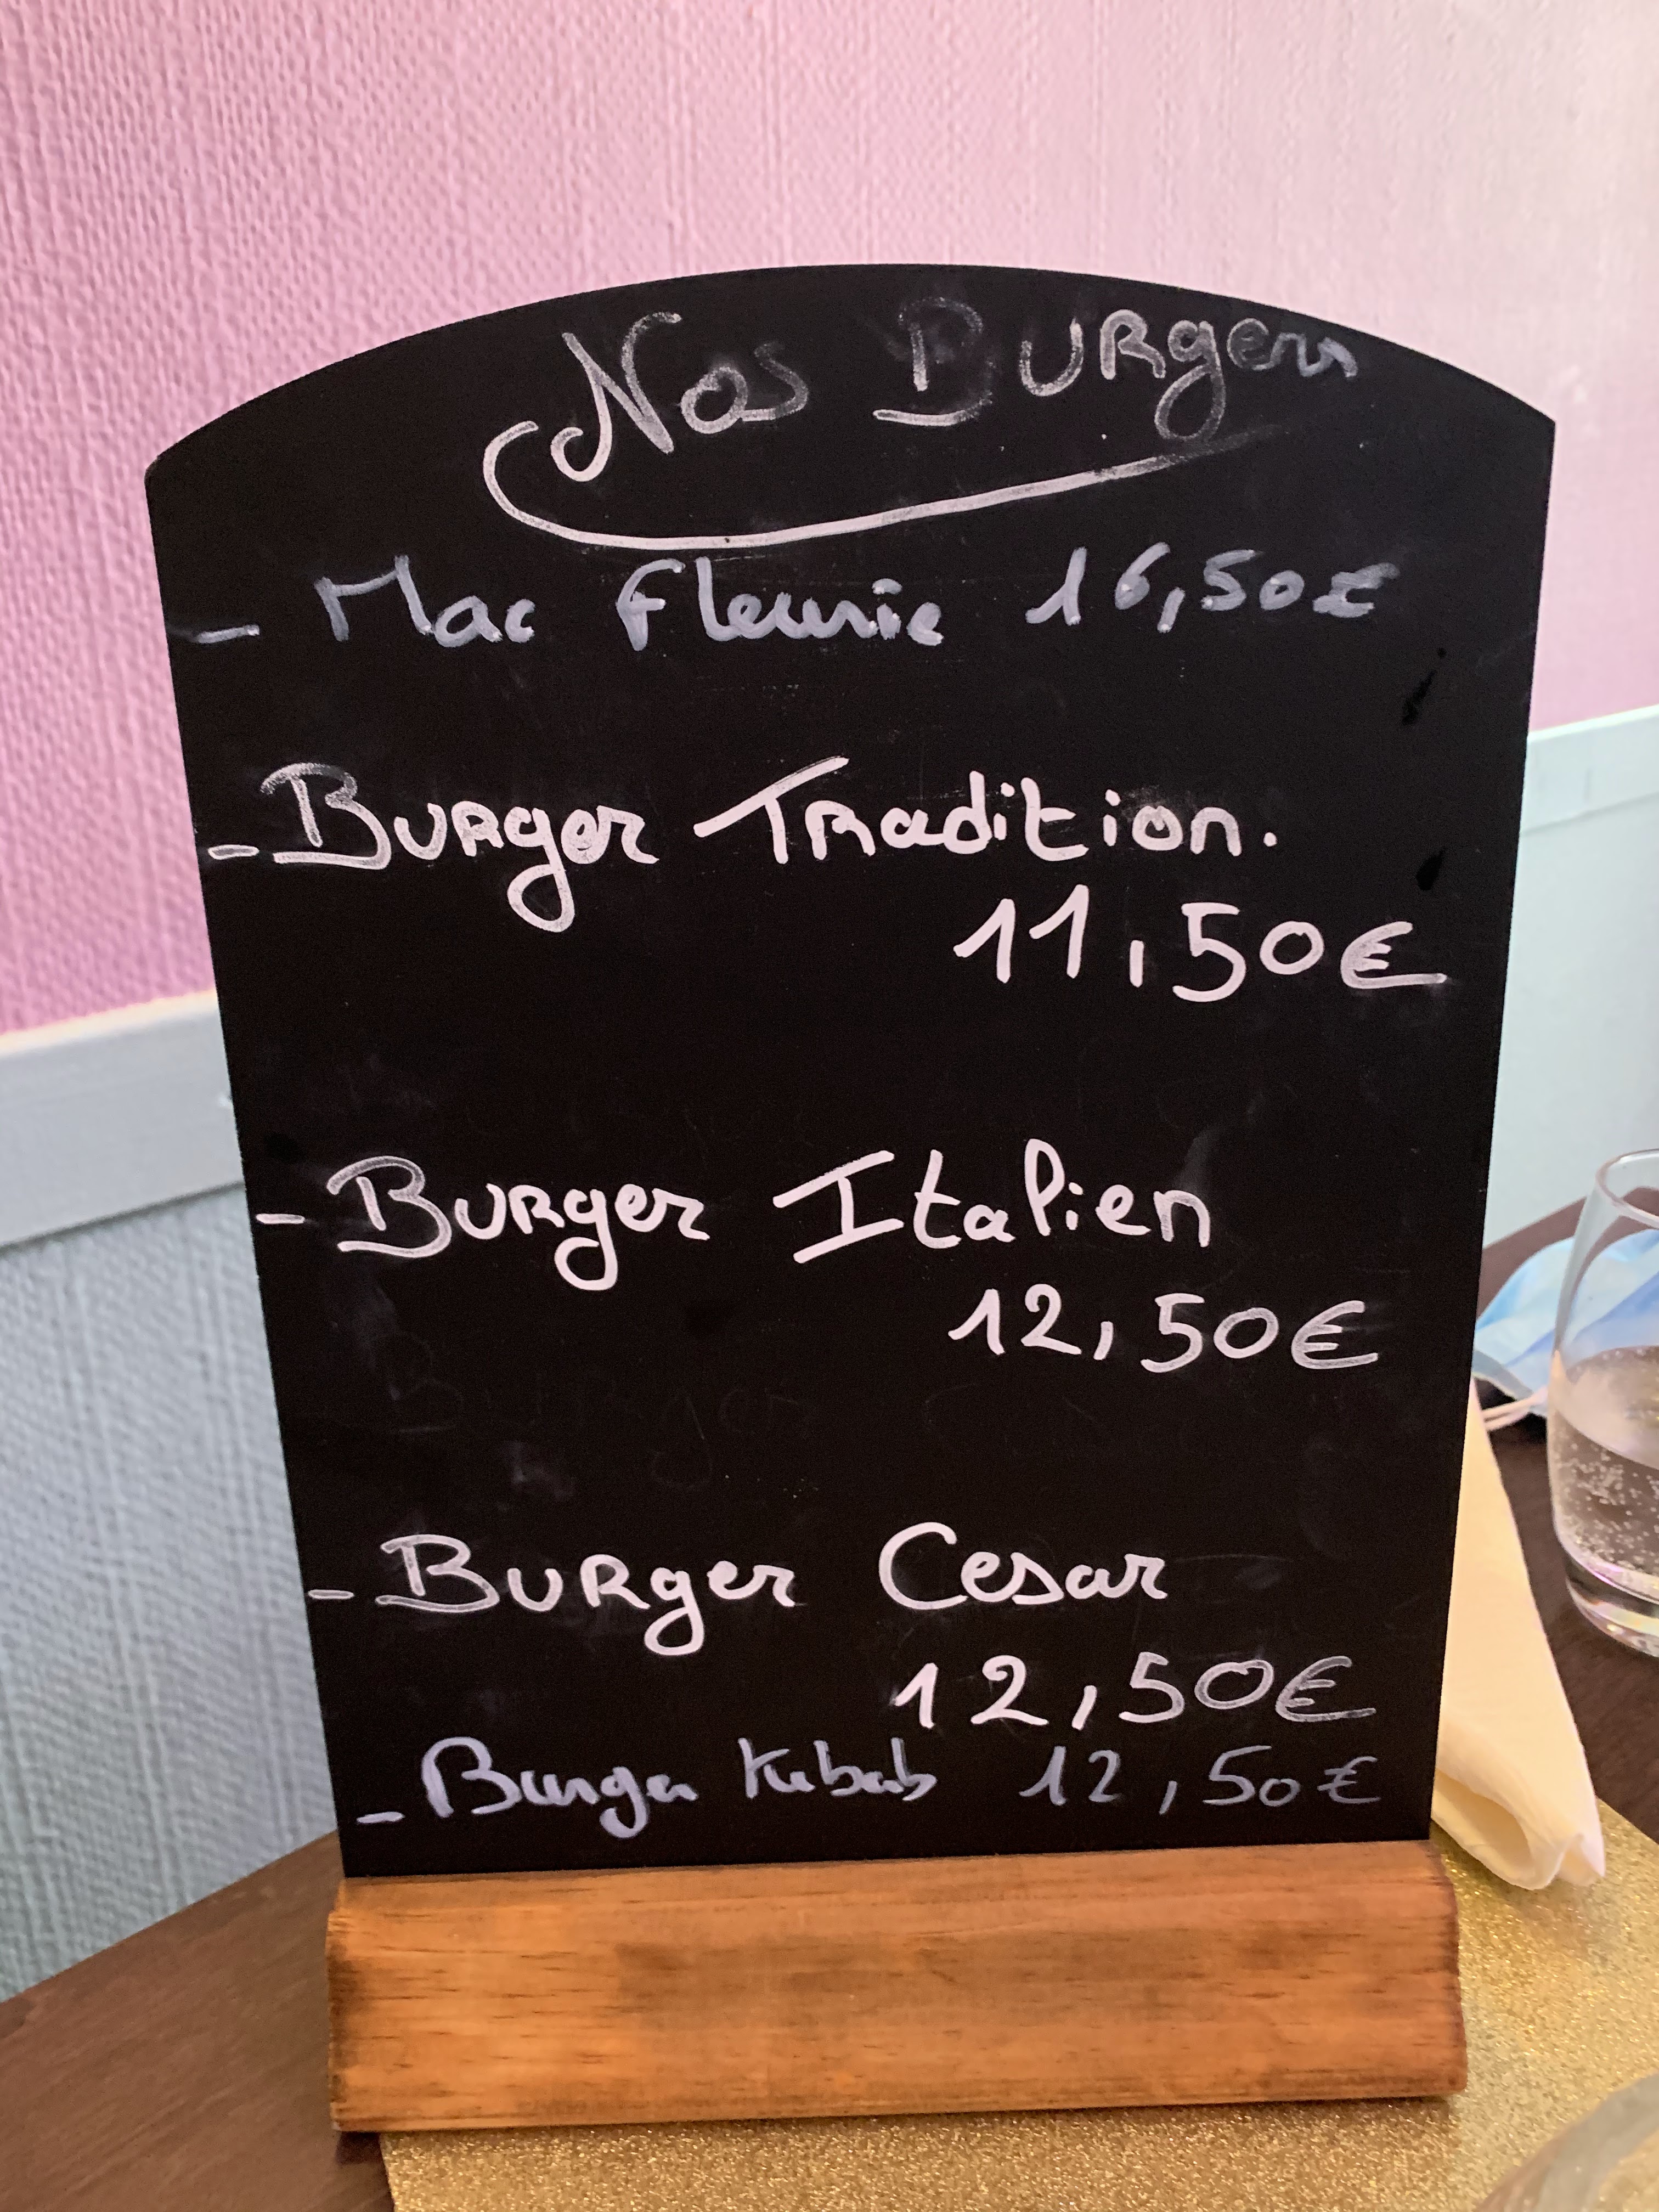 Nos Burgers
- Mac Fleurie 16,50€
- Burger Tradition.
11,50€
- Burger Italien
12,50€
- Burger Cesar
12,50€
- Burger Kebab 12,50€